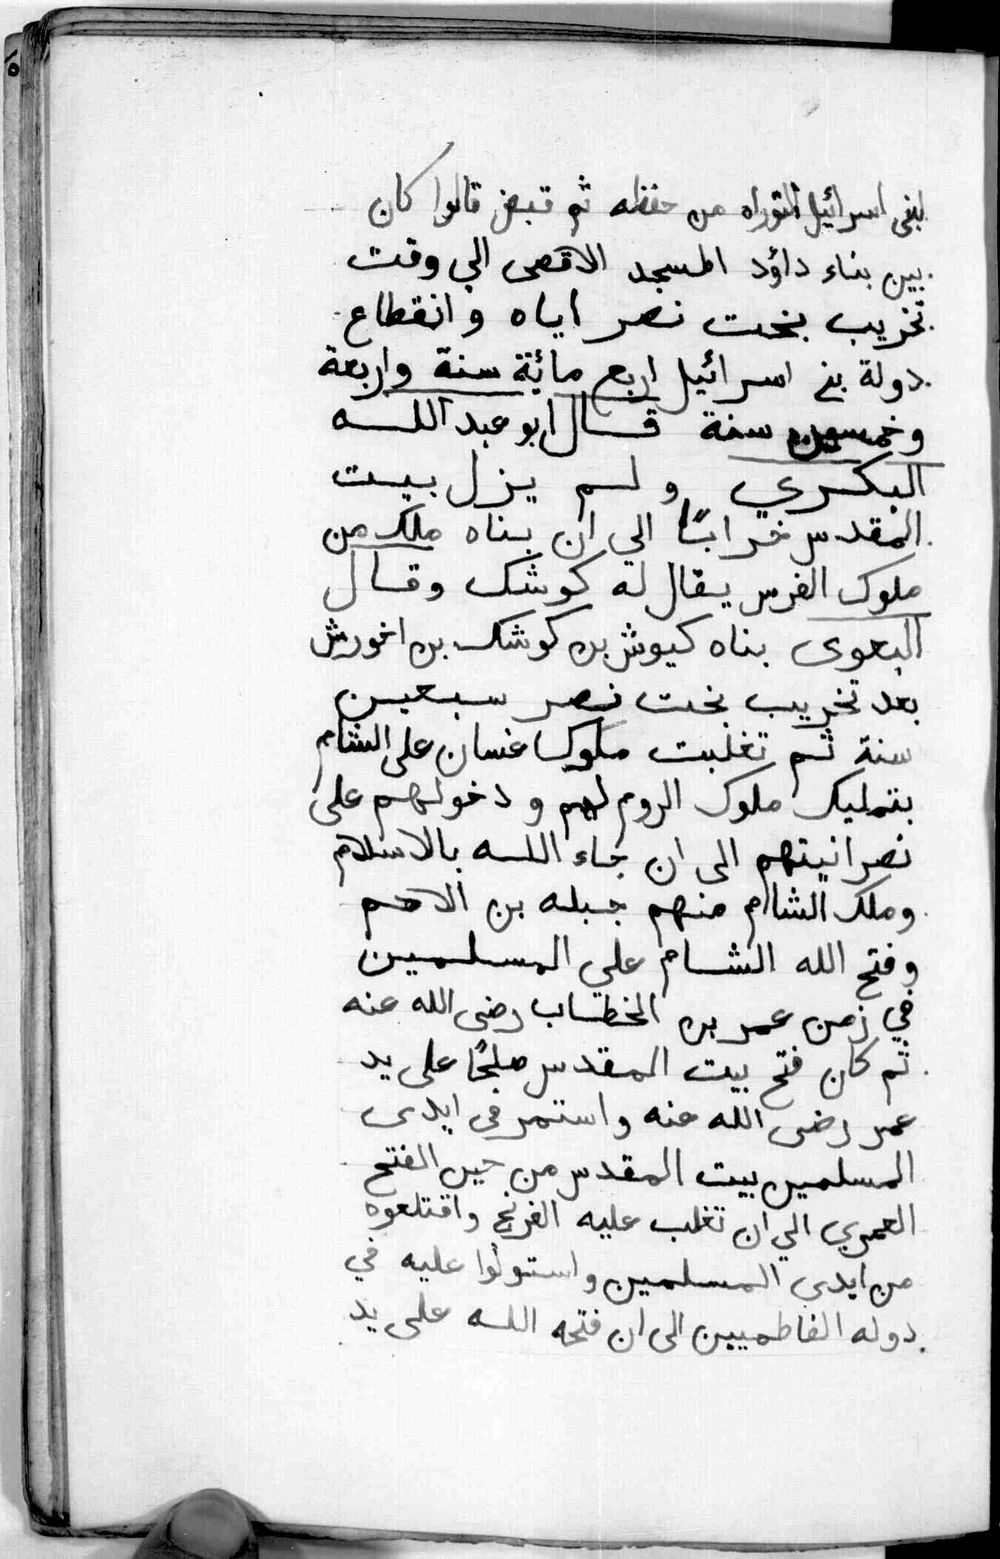 لبنى اسرائيل التوراه من حفظه ثم قبض قالوا كان
بين بناء داؤد المسجد الاقصى الي وقت
تخريب بخت نصر اياه وانقطاع
دولة بنى اسرائيل اربع مائة سنة واربعة
وخمسون سنة قال ابو عبد الله
البكري ولم يزل بيت
المقدس خرابًا الي ان بناه ملك من
ملوك الفرس يقال له كوشك وقال
البعوى بناه كيوش بن كوشك بن اخورش
بعد تخريب بخت نصر سبعين
سنة ثم تغلبت ملوك غسان على الشام
بتمليك ملوك الروم لهم ودخولهم على
نصرانيتهم الى ان جاء الله بالاسلام
وملك الشام منهم جبله بن الاهم
وفتح الله الشام علي المسلمين
في زمن عمر بن الخطاب رضى الله عنه
ثم كان فتح بيت المقدس صلحًا على يد
عمر رضى الله عنه واستمر فى ايدى
المسلمين بيت المقدس من حين الفتح
العمري الي ان تغلب عليه الفرنج واقتلعوه
من ايدى المسلمين واستولوا عليه في
دوله الفاطميين الى ان فتحه الله على يد